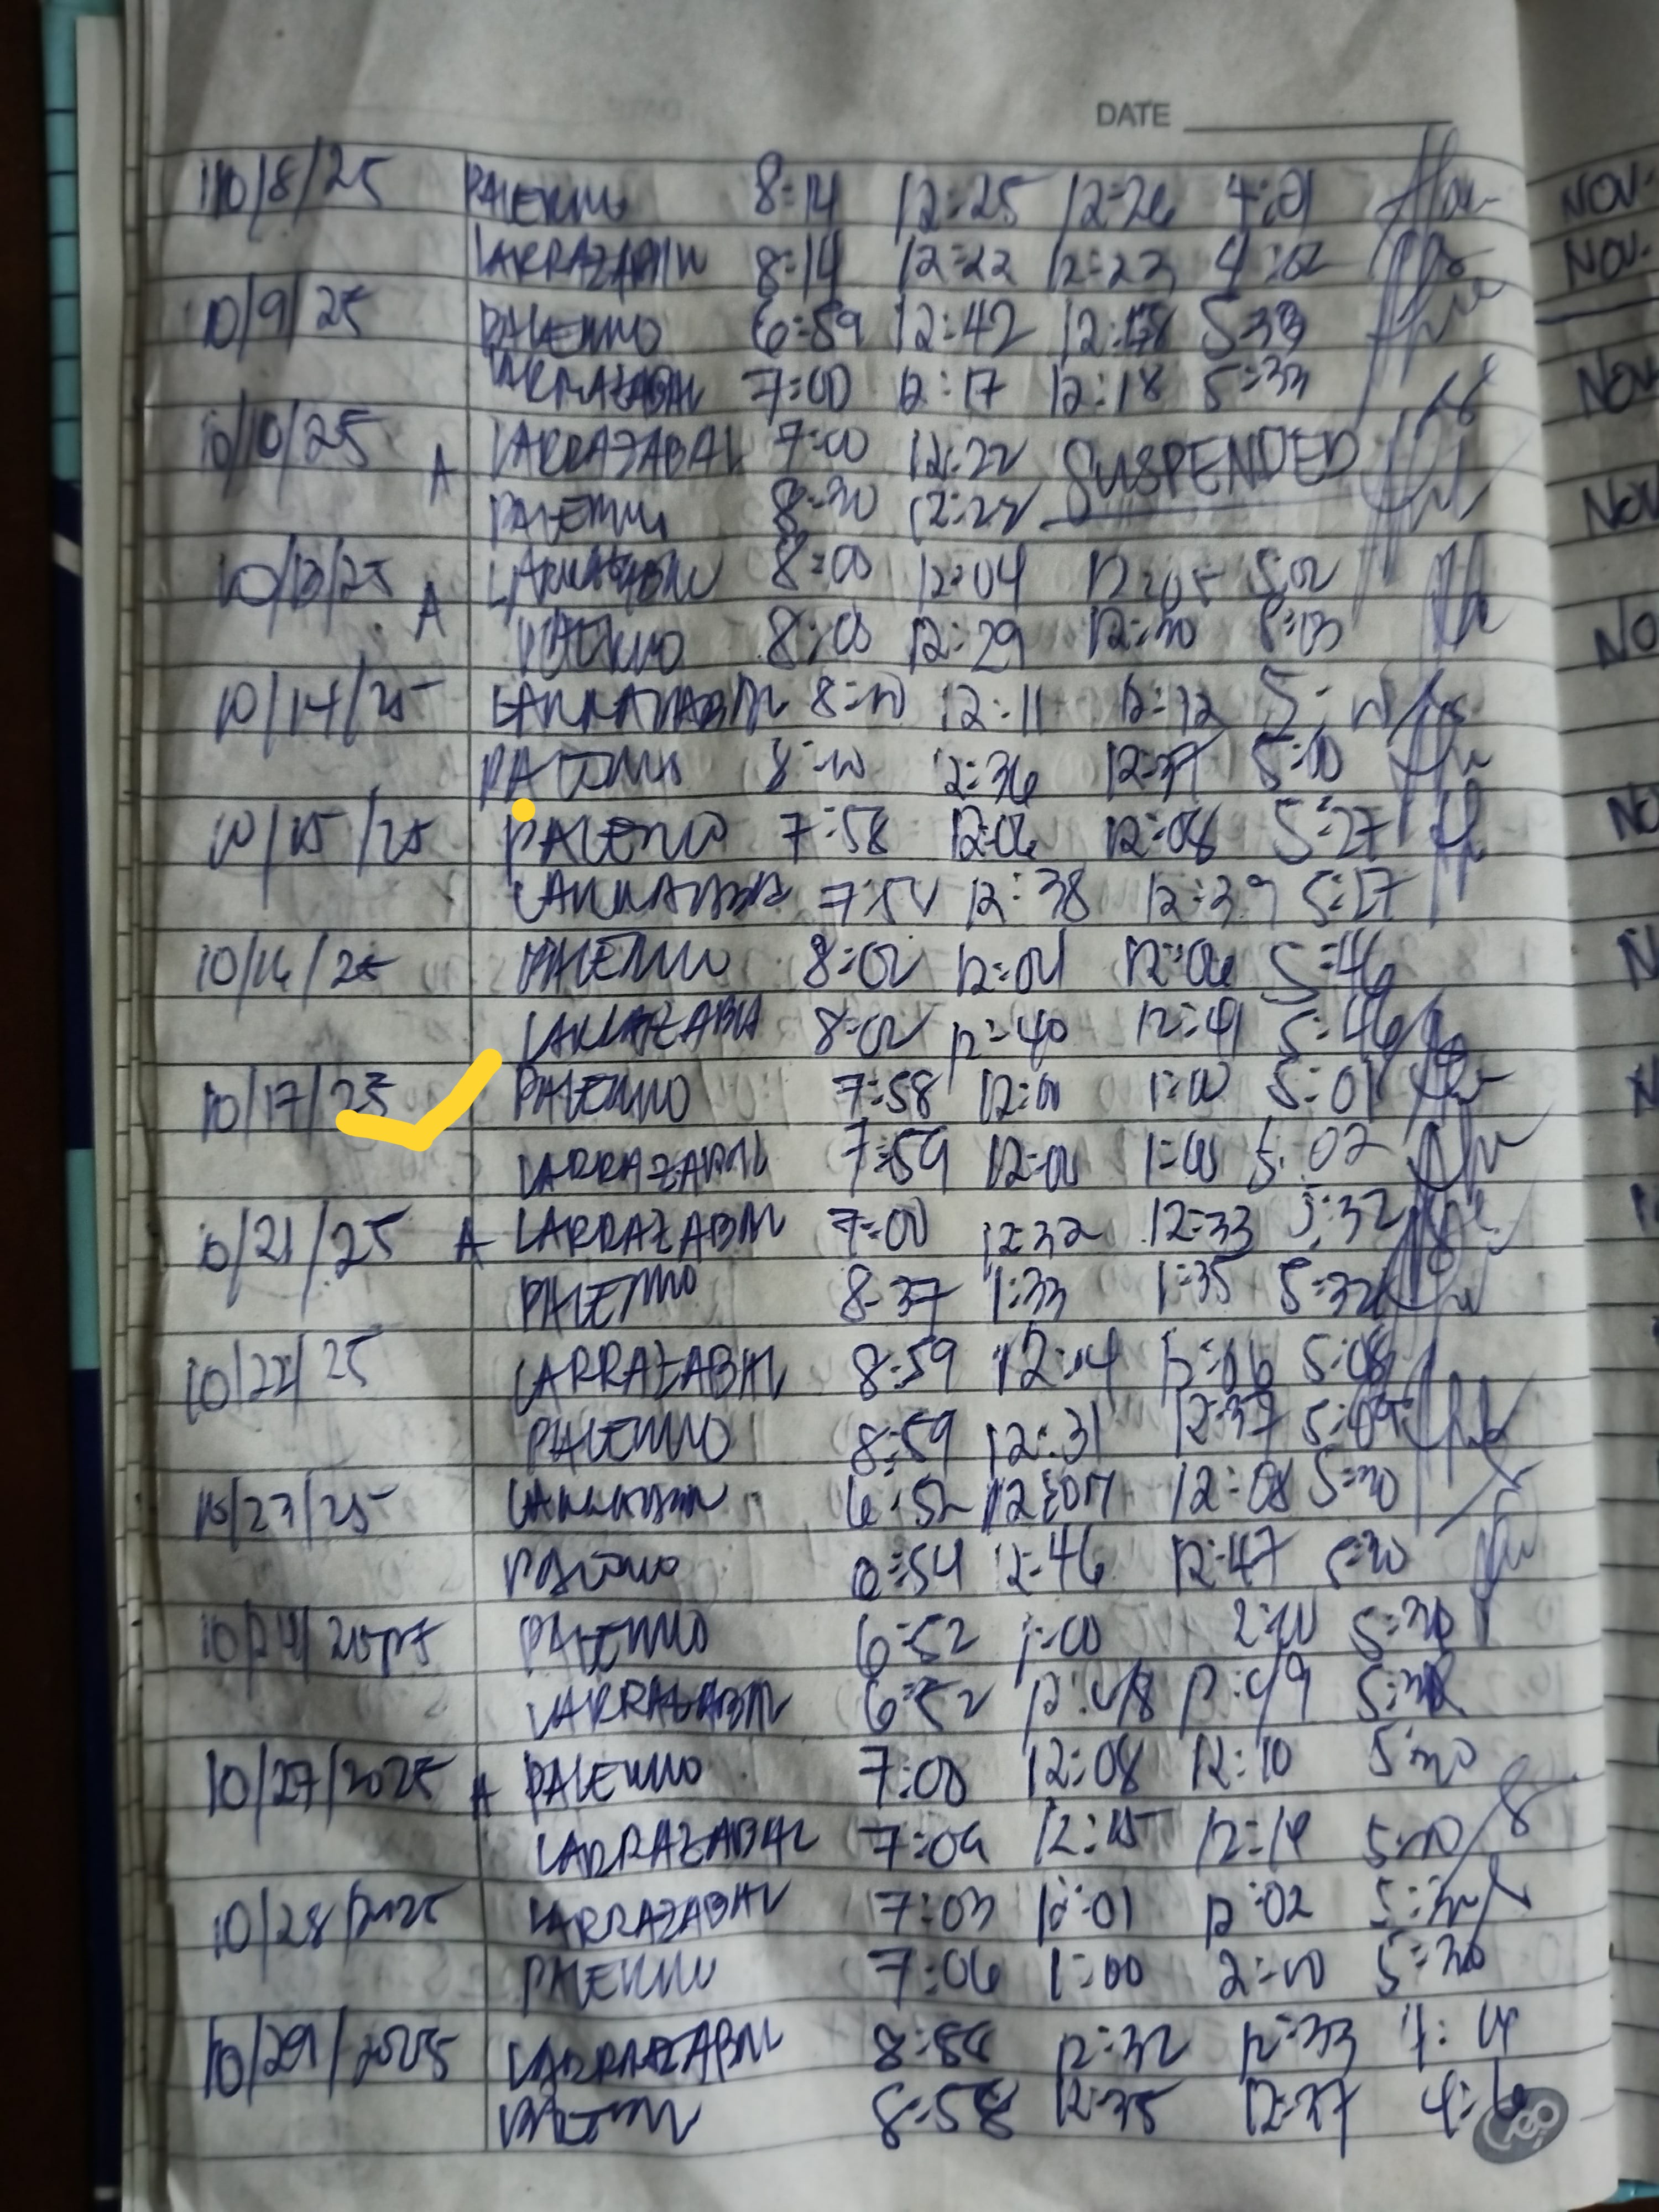 DATE
10/8/25 PALERMO 8:14 12:25 12:26 4:01
LARRAZABAL 8:14 12:22 12:23 4:02
10/9/25 PALERMO 6:59 12:42 12:48 5:33
LARRAZABAL 7:00 12:17 12:18 5:33
10/10/25 A LARRAZABAL 7:00 12:22 SUSPENDED
PALERMO 8:30 12:22
10/13/25 A LARRAZABAL 8:00 12:04 12:05 5:02
PALERMO 8:00 12:29 12:30 5:03
10/14/25 LARRAZABAL 8:00 12:11 12:12
PALERMO 8:00 12:36 12:37 5:00
10/15/25 PALERMO 7:58 12:06 12:08 5:27
LARRAZABAL 12:38 12:39 5:27
10/16/25 PALERMO 8:02 12:04 12:06 5:46
LARRAZABAL 8:02 12:40 12:41 5:46
10/17/25 PALERMO 7:58 12:00 1:00 5:01
LARRAZABAL 7:59 12:00 1:00 5:02
10/21/25 A LARRAZABAL 7:00 12:32 12:33 5:32
PALERMO 8:37 1:33 1:35 5:32
10/22/25 LARRAZABAL 8:59 12:14 5:08
PALERMO 8:59 12:31 12:37
10/23/25 LARRAZABAL 6:52 12:07 12:08 5:30
PALERMO 12:46 12:47 5:30
PALERMO 6:52 1:00 2:00 5:30
LARRAZABAL 6:52 12:48 12:49
10/27/2025 A PALERMO 7:00 12:08 12:10 5:30
LARRAZABAL 12:15
10/28/2025 LARRAZABAL 7:03 12:01 12:02
PALERMO 7:06 1:00 2:00 5:30
10/29/2025 LARRAZABAL 12:32 12:33
PALERMO 8:58 12:35 12:37
NOV.
NOV.
NOV
NOV
NO
NO
N
N